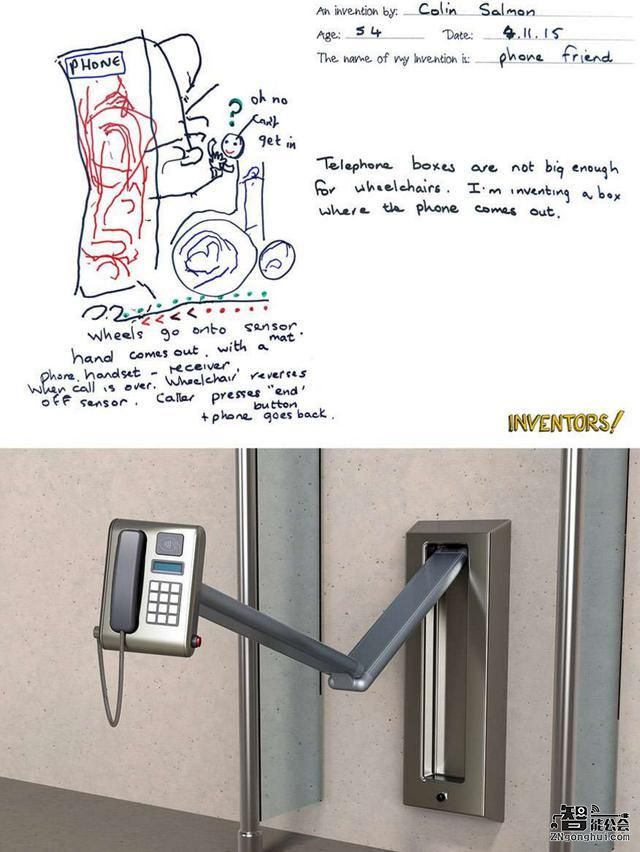 An invention by: Colin Salmon
Age: 54 Date: 4.11.15
The name of my Invention is: phone friend
PHONE
?
oh no
can't
get in
Telephone boxes are not big enough
for wheelchairs. I'm inventing a box
where the phone comes out.
Wheels go onto sensor
mat.
hand comes out, with a
phone handset - receiver
When call is over. Wheelchair reverses
off sensor. Caller presses "end"
button
+ phone goes back.
INVENTORS!
智能公会
ZNgonghui.com